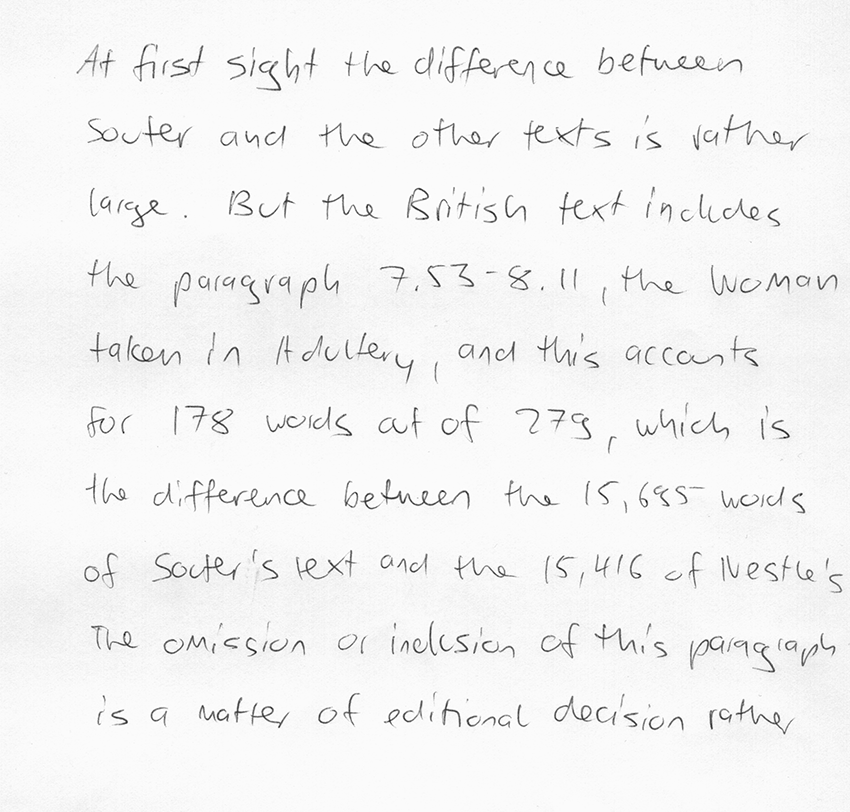 At first sight the difference between
Souter and the other texts is rather
large. But the British text includes
the paragraph 7.53-8.11, the Woman
taken in Adultery, and this accounts
for 178 words out of 279, which is
the difference between the 15,695 words
of Souter's text and the 15,416 of Nestle's
The omission or inclusion of this paragraph
is a matter of editional decision rather